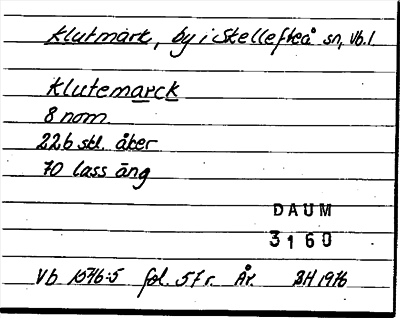 Klutmark, by i Skellefteå sn, Vb.l.
Klutemarck
8 nom.
226 skl. åker
70 lass äng
DAUM
3160
Vb 1546:5 fol. 57 r. År. BH 1976